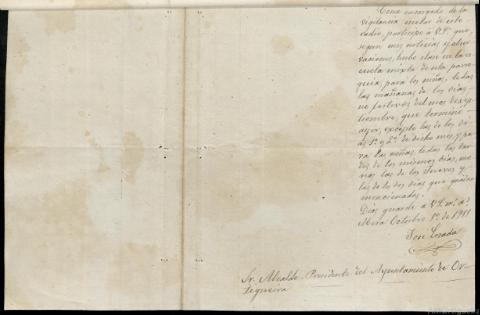 Como encargado de la
vigilancia escolar de este
radio, participo á V.S. que,
según mis noticias y obser-
vaciones, hubo clase en la es-
cuela mixta de esta parro-
quia, para los niños, todas
las mañanas de los días
no festivos del mes de Sep-
tiembre, que terminó
ayer, excepto las de los dí-
as 1º y 2º de dicho mes, y pa-
ra las niñas, todas las tar-
des de los mismos días, me-
nos las de los jueves y
las de los dos días que quedan
mencionados.
Dios guarde a V.S. m.s a.s
Mera Octubre 1º de 1911
José Losada
Sr. Alcalde-Presidente del Ayuntamiento de Or-
tigueira